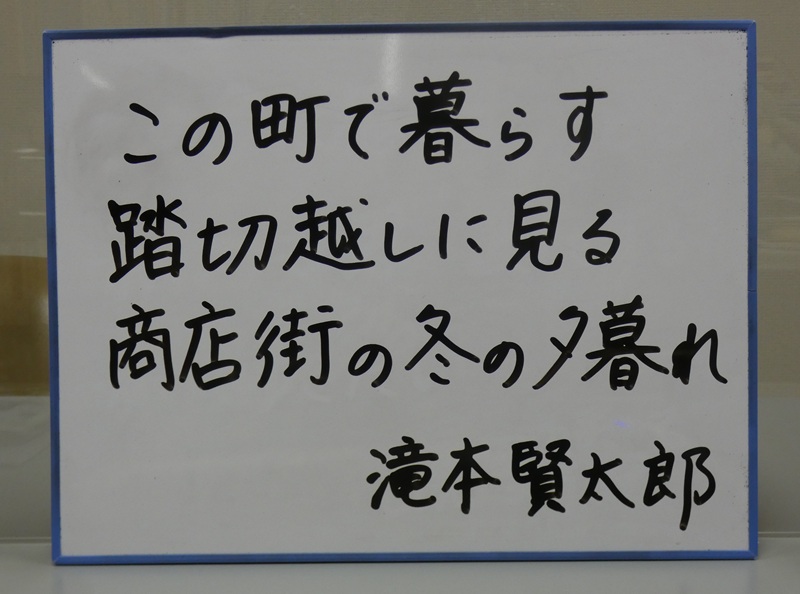 この町で暮らす
踏切越しに見る
商店街の冬の夕暮れ
滝本賢太郎